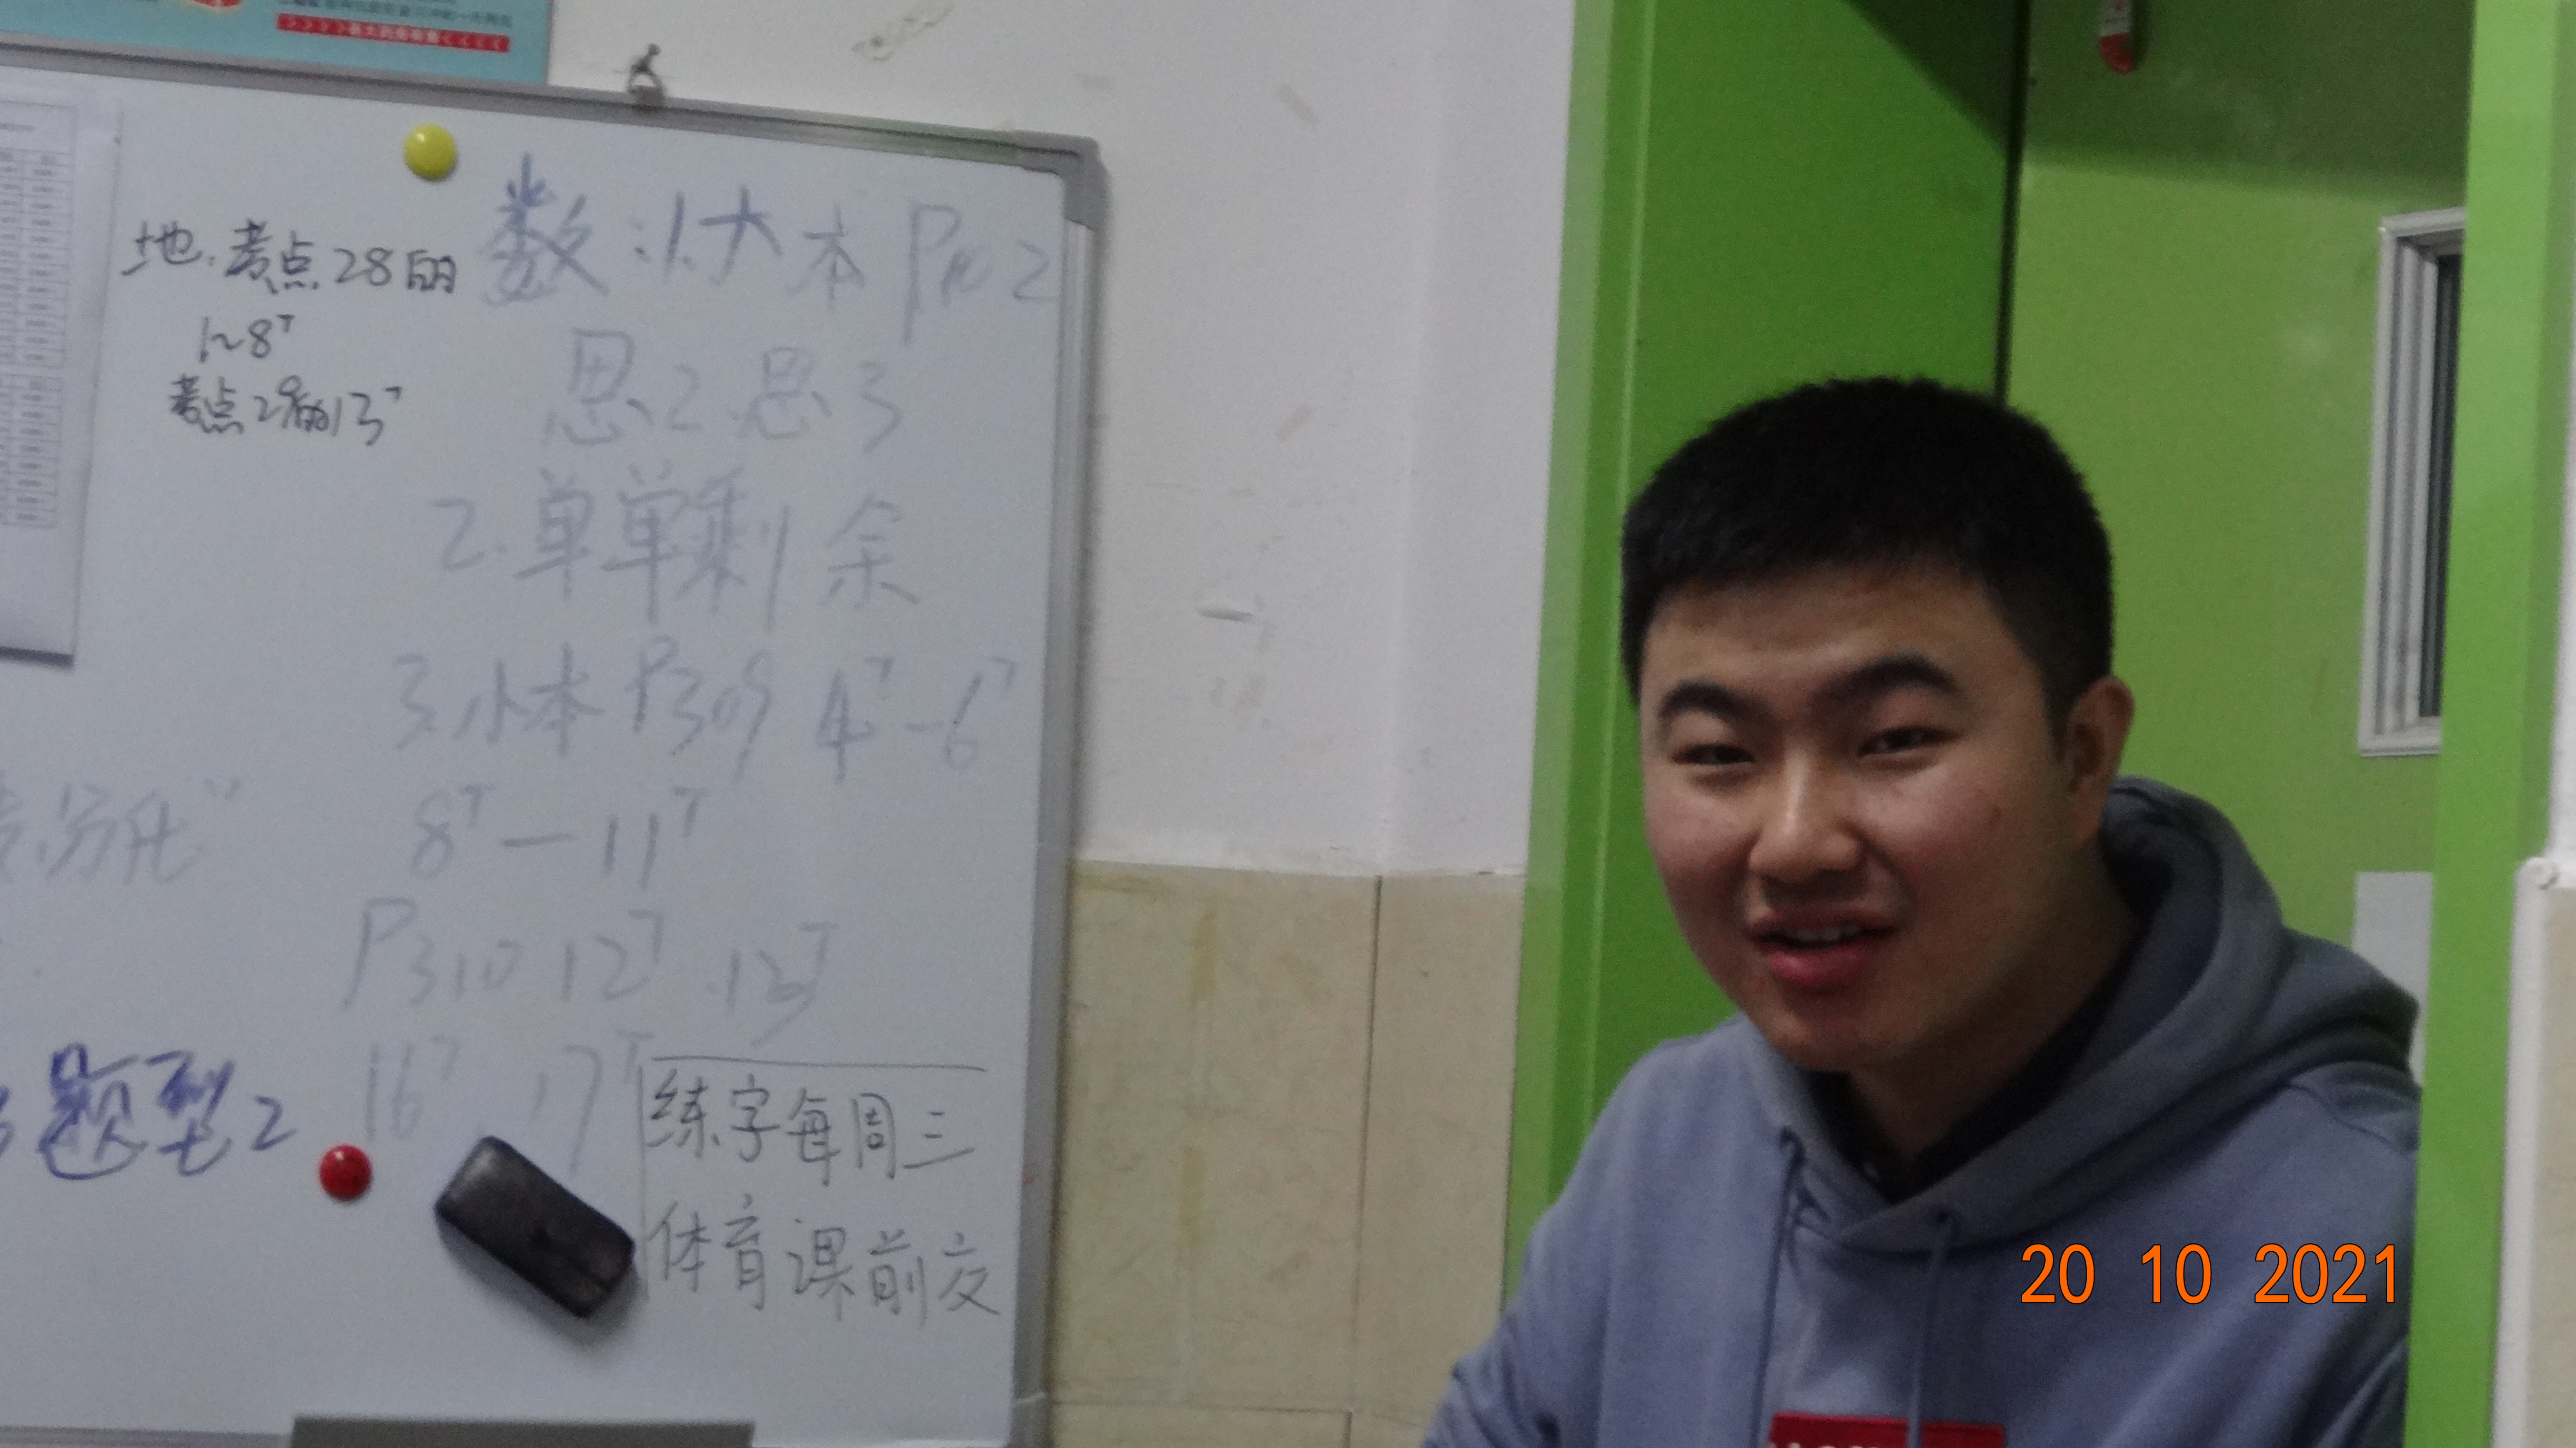 地.考点28的
1~8T
考点29的13T
数:1.大本P102
思2 思3
2.单单剩余
3.小本P309 4T-6T
8T—11T
P310 12T.13T
16T.17T
题型2
练字每周三
体育课前交
20 10 2021